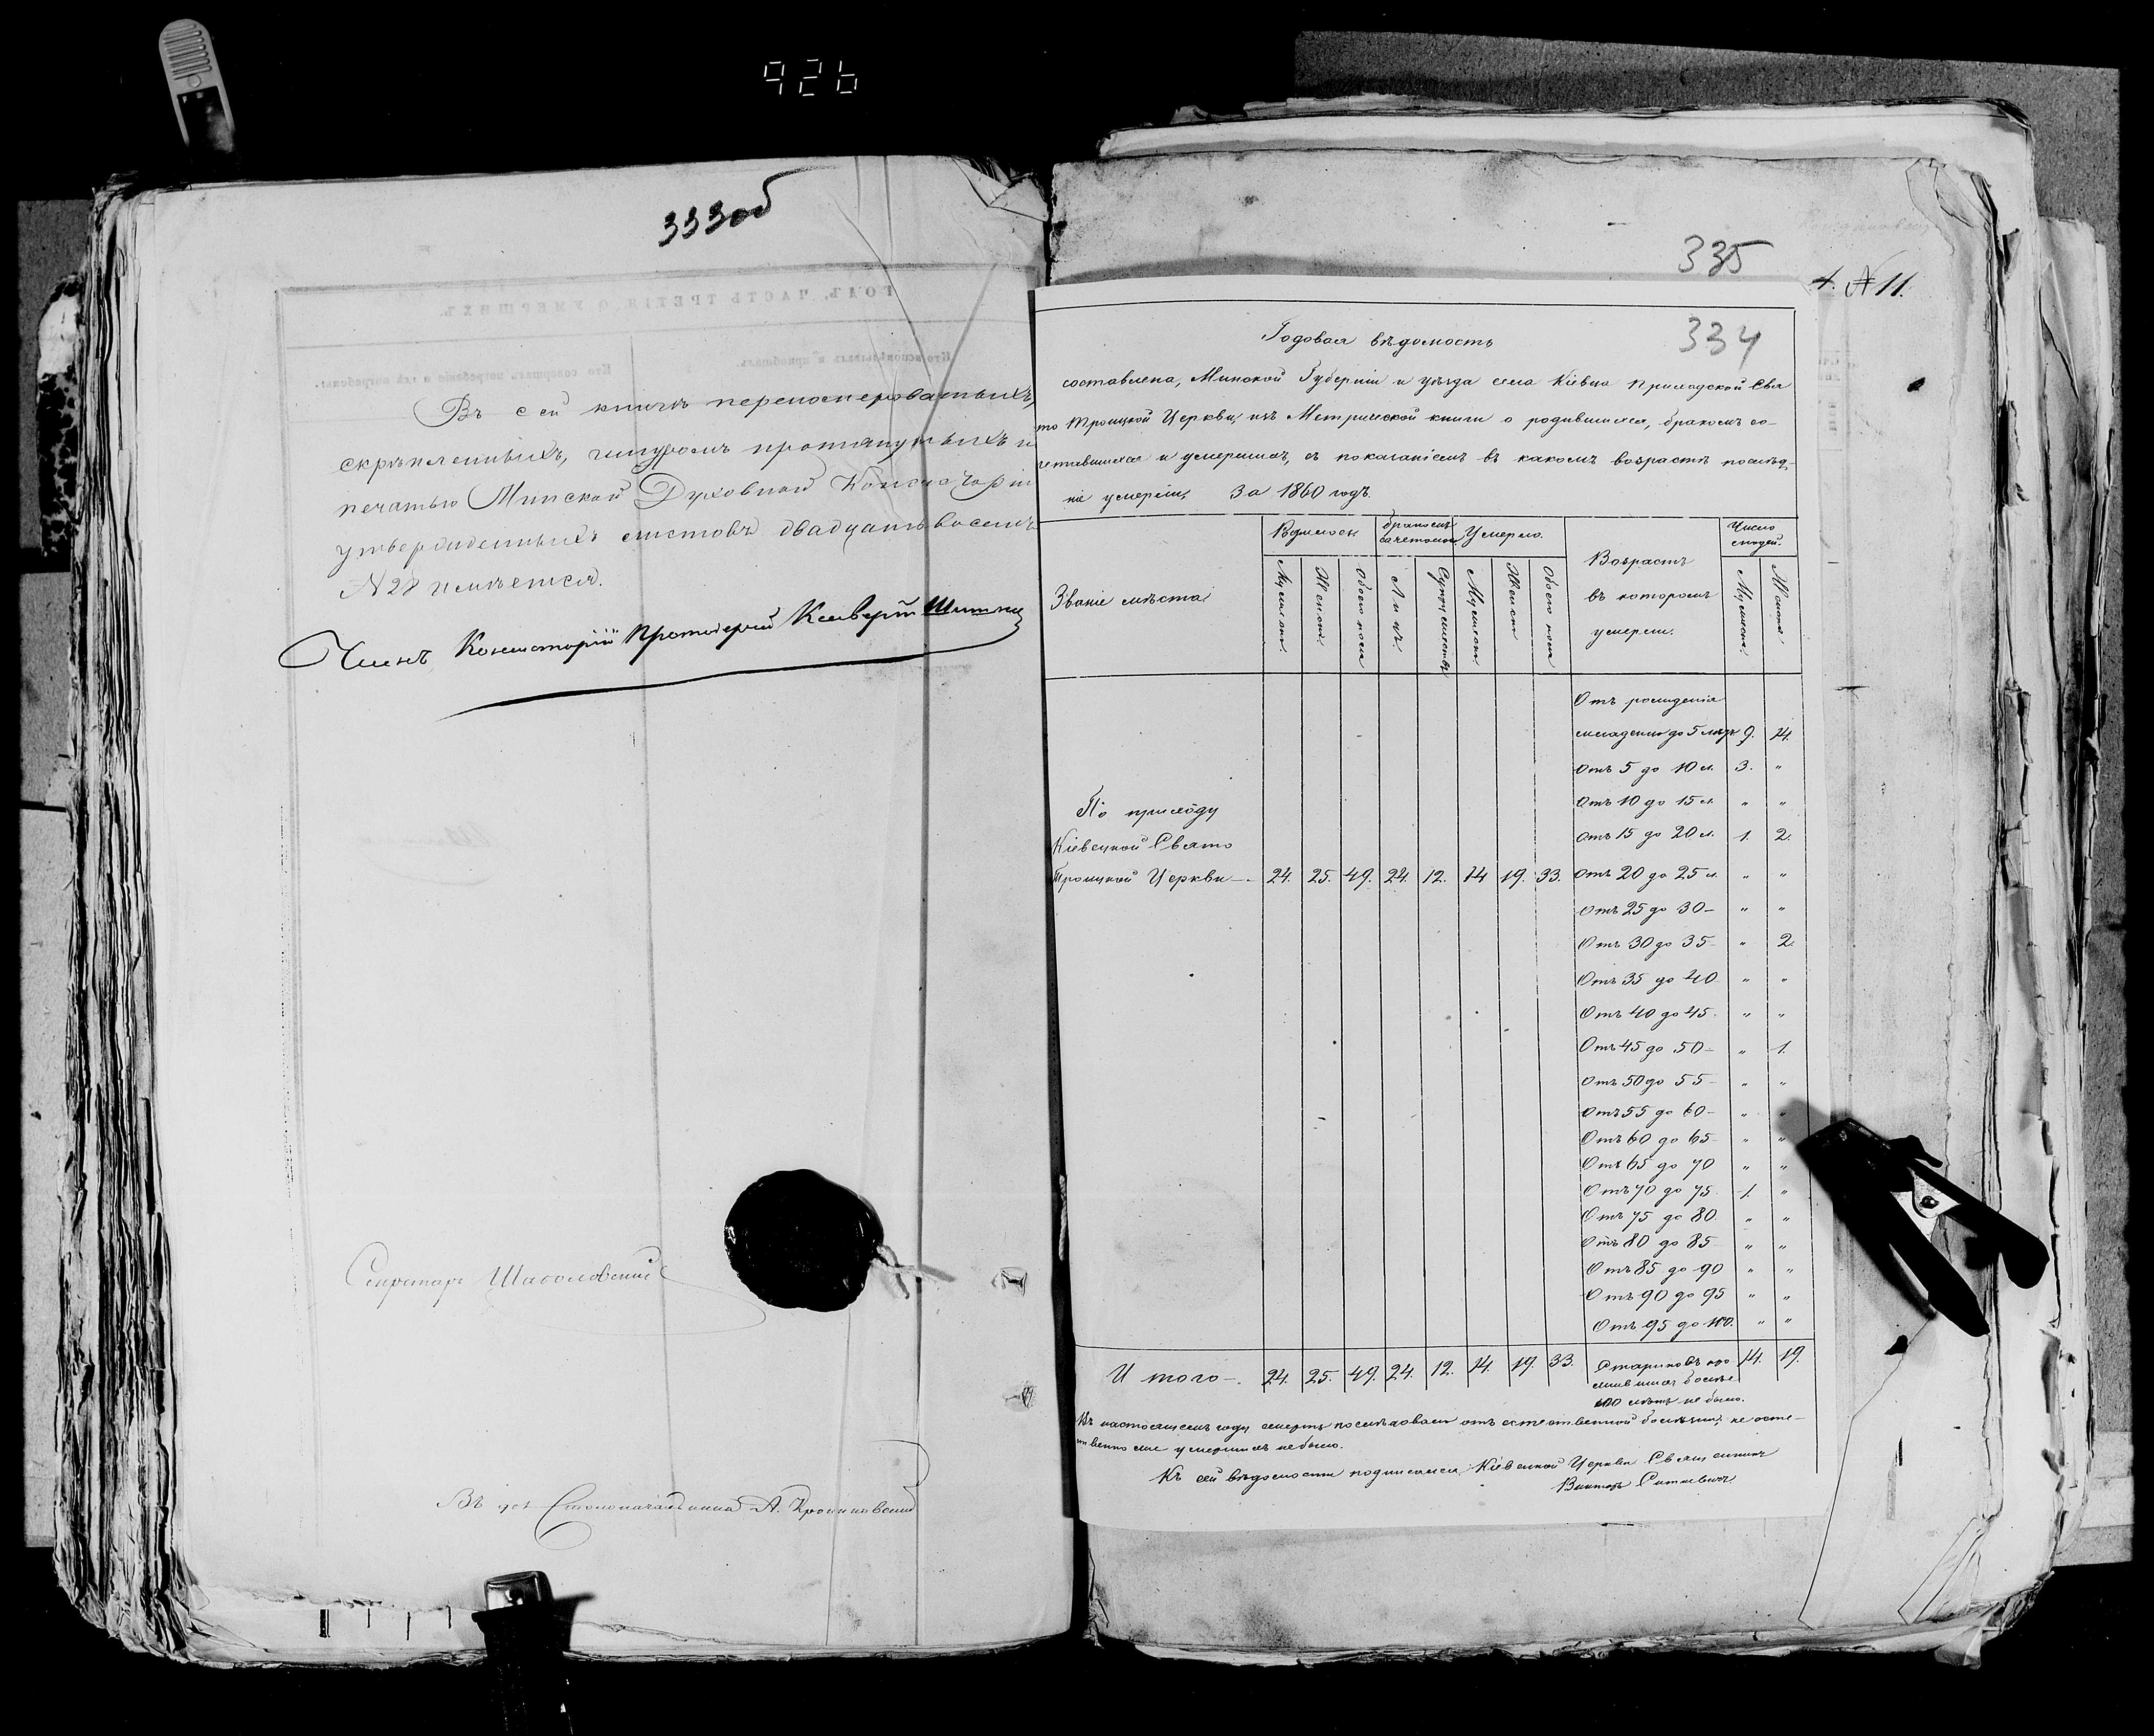 926
333об
Въ сей книгѣ перенумерованныхъ,
скрѣпленныхъ, шнуромъ протянутыхъ и
печатью Минской Духовной Консисторіи
утвержденныхъ листовъ двадцать восемь
№ 28 имѣется.
Членъ Консисторіи Протоіерей
Секретарь
Въ Столоначальника А.
335
№ 11.
334
Годовая вѣдомость
составлена, Минской Губерніи и уѣзда села Кіевца Приходской Свя
то Троицкой Церкви, изъ Метрической книги о родившихся, бракомъ со-
четавшихся и умершихъ, съ показаніемъ въ какомъ возрастѣ послѣд-
ніе умерли, За 1860 годъ.
Званіе мѣста
Родилось
Мужеск.
Женск.
Обоего пола
Бракомъ сочеталось
Лицъ.
Супружествъ
Умерло.
Мужеск.
Женск.
Обоего пола
Возрастъ
въ которомъ
умерли.
Число людей.
Мужеска
Женска
Отъ рожденія
младенц. до 5 лѣтъ 9. 14.
Отъ 5 до 10 л. 3. "
Отъ 10 до 15 л. " "
Отъ 15 до 20 л. 1. 2.
По приходу
Кіевецкой Свято
Троицкой Церкви —. 24. 25. 49. 24. 12. 14 19. 33. Отъ 20 до 25 л. " "
Отъ 25 до 30 – " "
Отъ 30 до 35 – " 2.
Отъ 35 до 40 " "
Отъ 40 до 45. " "
Отъ 45 до 50 – " 1.
Отъ 50 до 55 – " "
Отъ 55 до 60 – " "
Отъ 60 до 65 – " "
Отъ 65 до 70 " "
Отъ 70 до 75. 1. "
Отъ 75 до 80. " "
Отъ 80 до 85 – " "
Отъ 85 до 90 " "
Отъ 90 до 95 " "
Отъ 95 до 100. " "
Итого —. 24. 25. 49. 24. 12. 14. 19. 33. Стариковъ про 14. 19.
жившихъ болѣе
100 лѣтъ не было.
Въ настоящемъ году смерть послѣдовала отъ естественной болѣзни, не есте-
ственно же умершихъ не было.
Къ сей вѣдомости подписался, Кіевецкой Церкви Священникъ
Викторъ